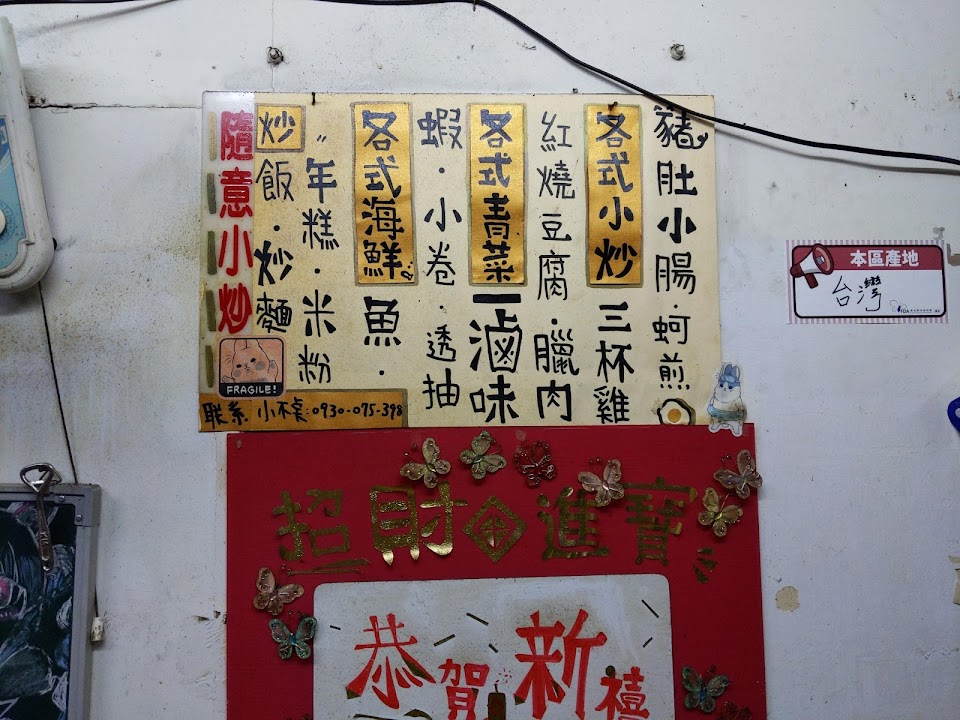 隨意小炒
炒飯·炒麵
〃年糕·米粉
各式海鮮 魚·
蝦·小卷·透抽
各式青菜 — 滷味
紅燒豆腐·臘肉
各式小炒 三杯雞
豬肚小腸·蚵煎
FRAGILE!
联系 小不奌:0930-075-398
本區產地
台灣
招財進寶
恭賀新禧